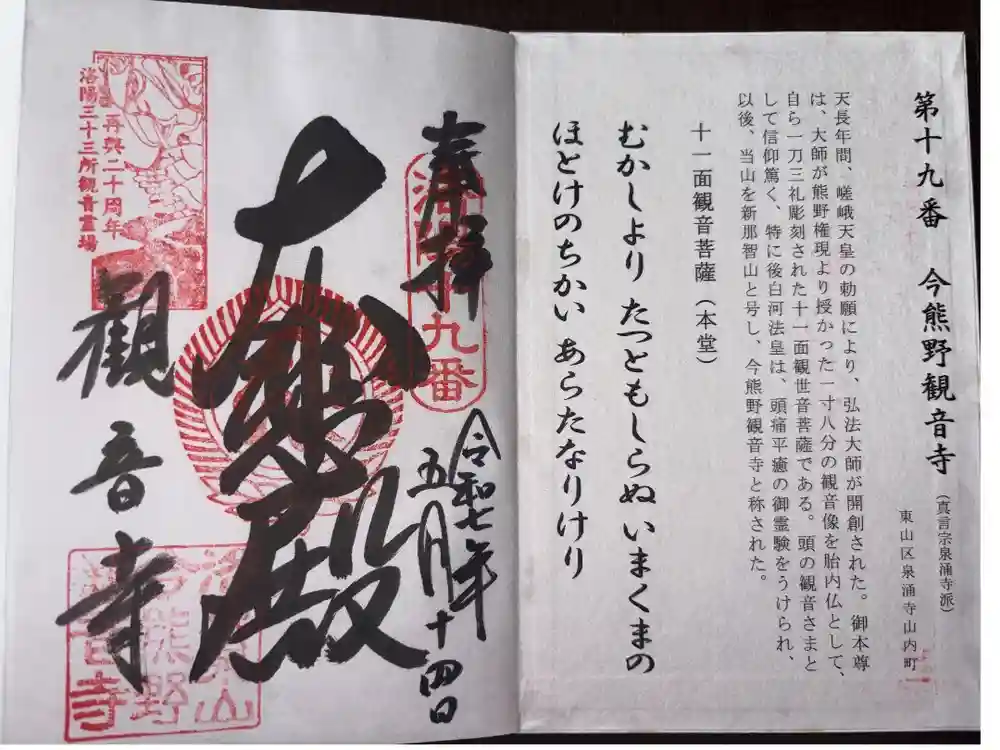 第十九番 今熊野観音寺(真言宗泉涌寺派)
東山区泉涌寺山内町
天長年間、嵯峨天皇の勅願により、弘法大師が開創された。御本尊
は、大師が熊野権現より授かった一寸八分の観音像を胎内仏として、
自ら一刀三礼彫刻された十一面観世音菩薩である。頭の観音さまと
して信仰篤く、特に後白河法皇は、頭痛平癒の御霊験をうけられ、
以後、当山を新那智山と号し、今熊野観音寺と称された。
十一面観音菩薩(本堂)
むかしより たつともしらぬ いまくまの
ほとけのちかい あらたなりけり
奉拝
洛陽十九番
令和七年
五月十四日
大悲殿
観音寺
再興二十周年
洛陽三十三所観音霊場